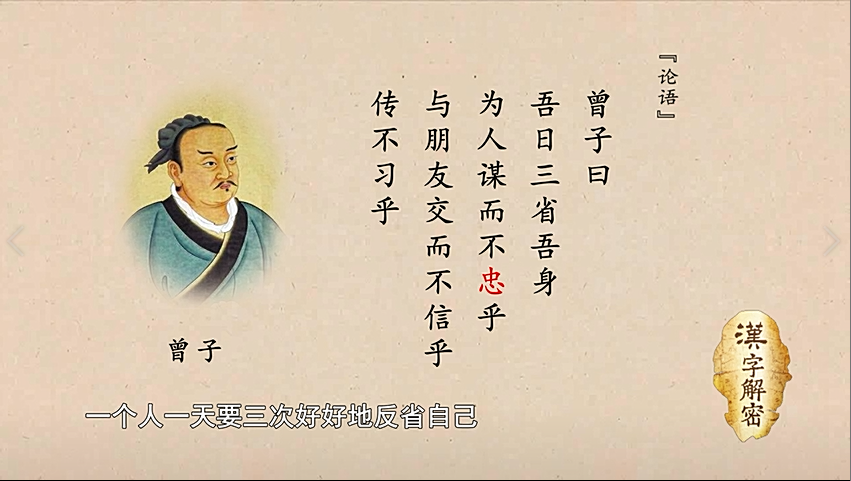 『论语』
曾子曰
吾日三省吾身
为人谋而不忠乎
与朋友交而不信乎
传不习乎
曾子
一个人一天要三次好好地反省自己
漢字解密